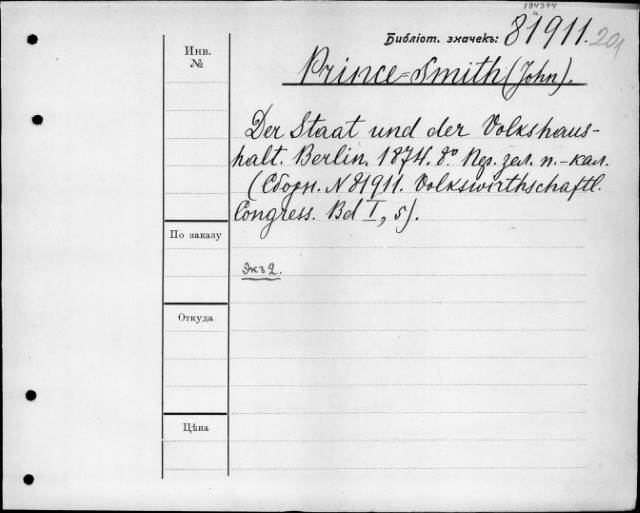 104394
Библіот. значекъ: 81911. 201
Инв. №
Prince-Smith (John).
Der Staat und der Volkshaus-
halt. Berlin. 1874. 8° Пер. зел. п.-кал.
(Сборн. N 81911. Volkswirthschaftl.
Congress. Bd I, 5).
По заказу
Экз 2.
Откуда
Цѣна